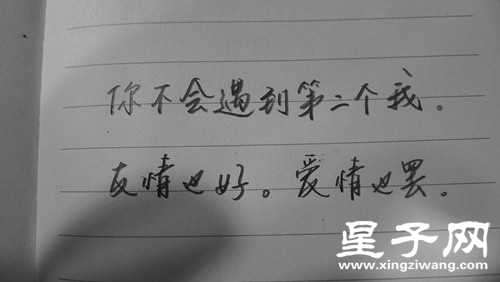 你不会遇到第二个我。
友情也好。爱情也罢。
星子网
www.xingziwang.com